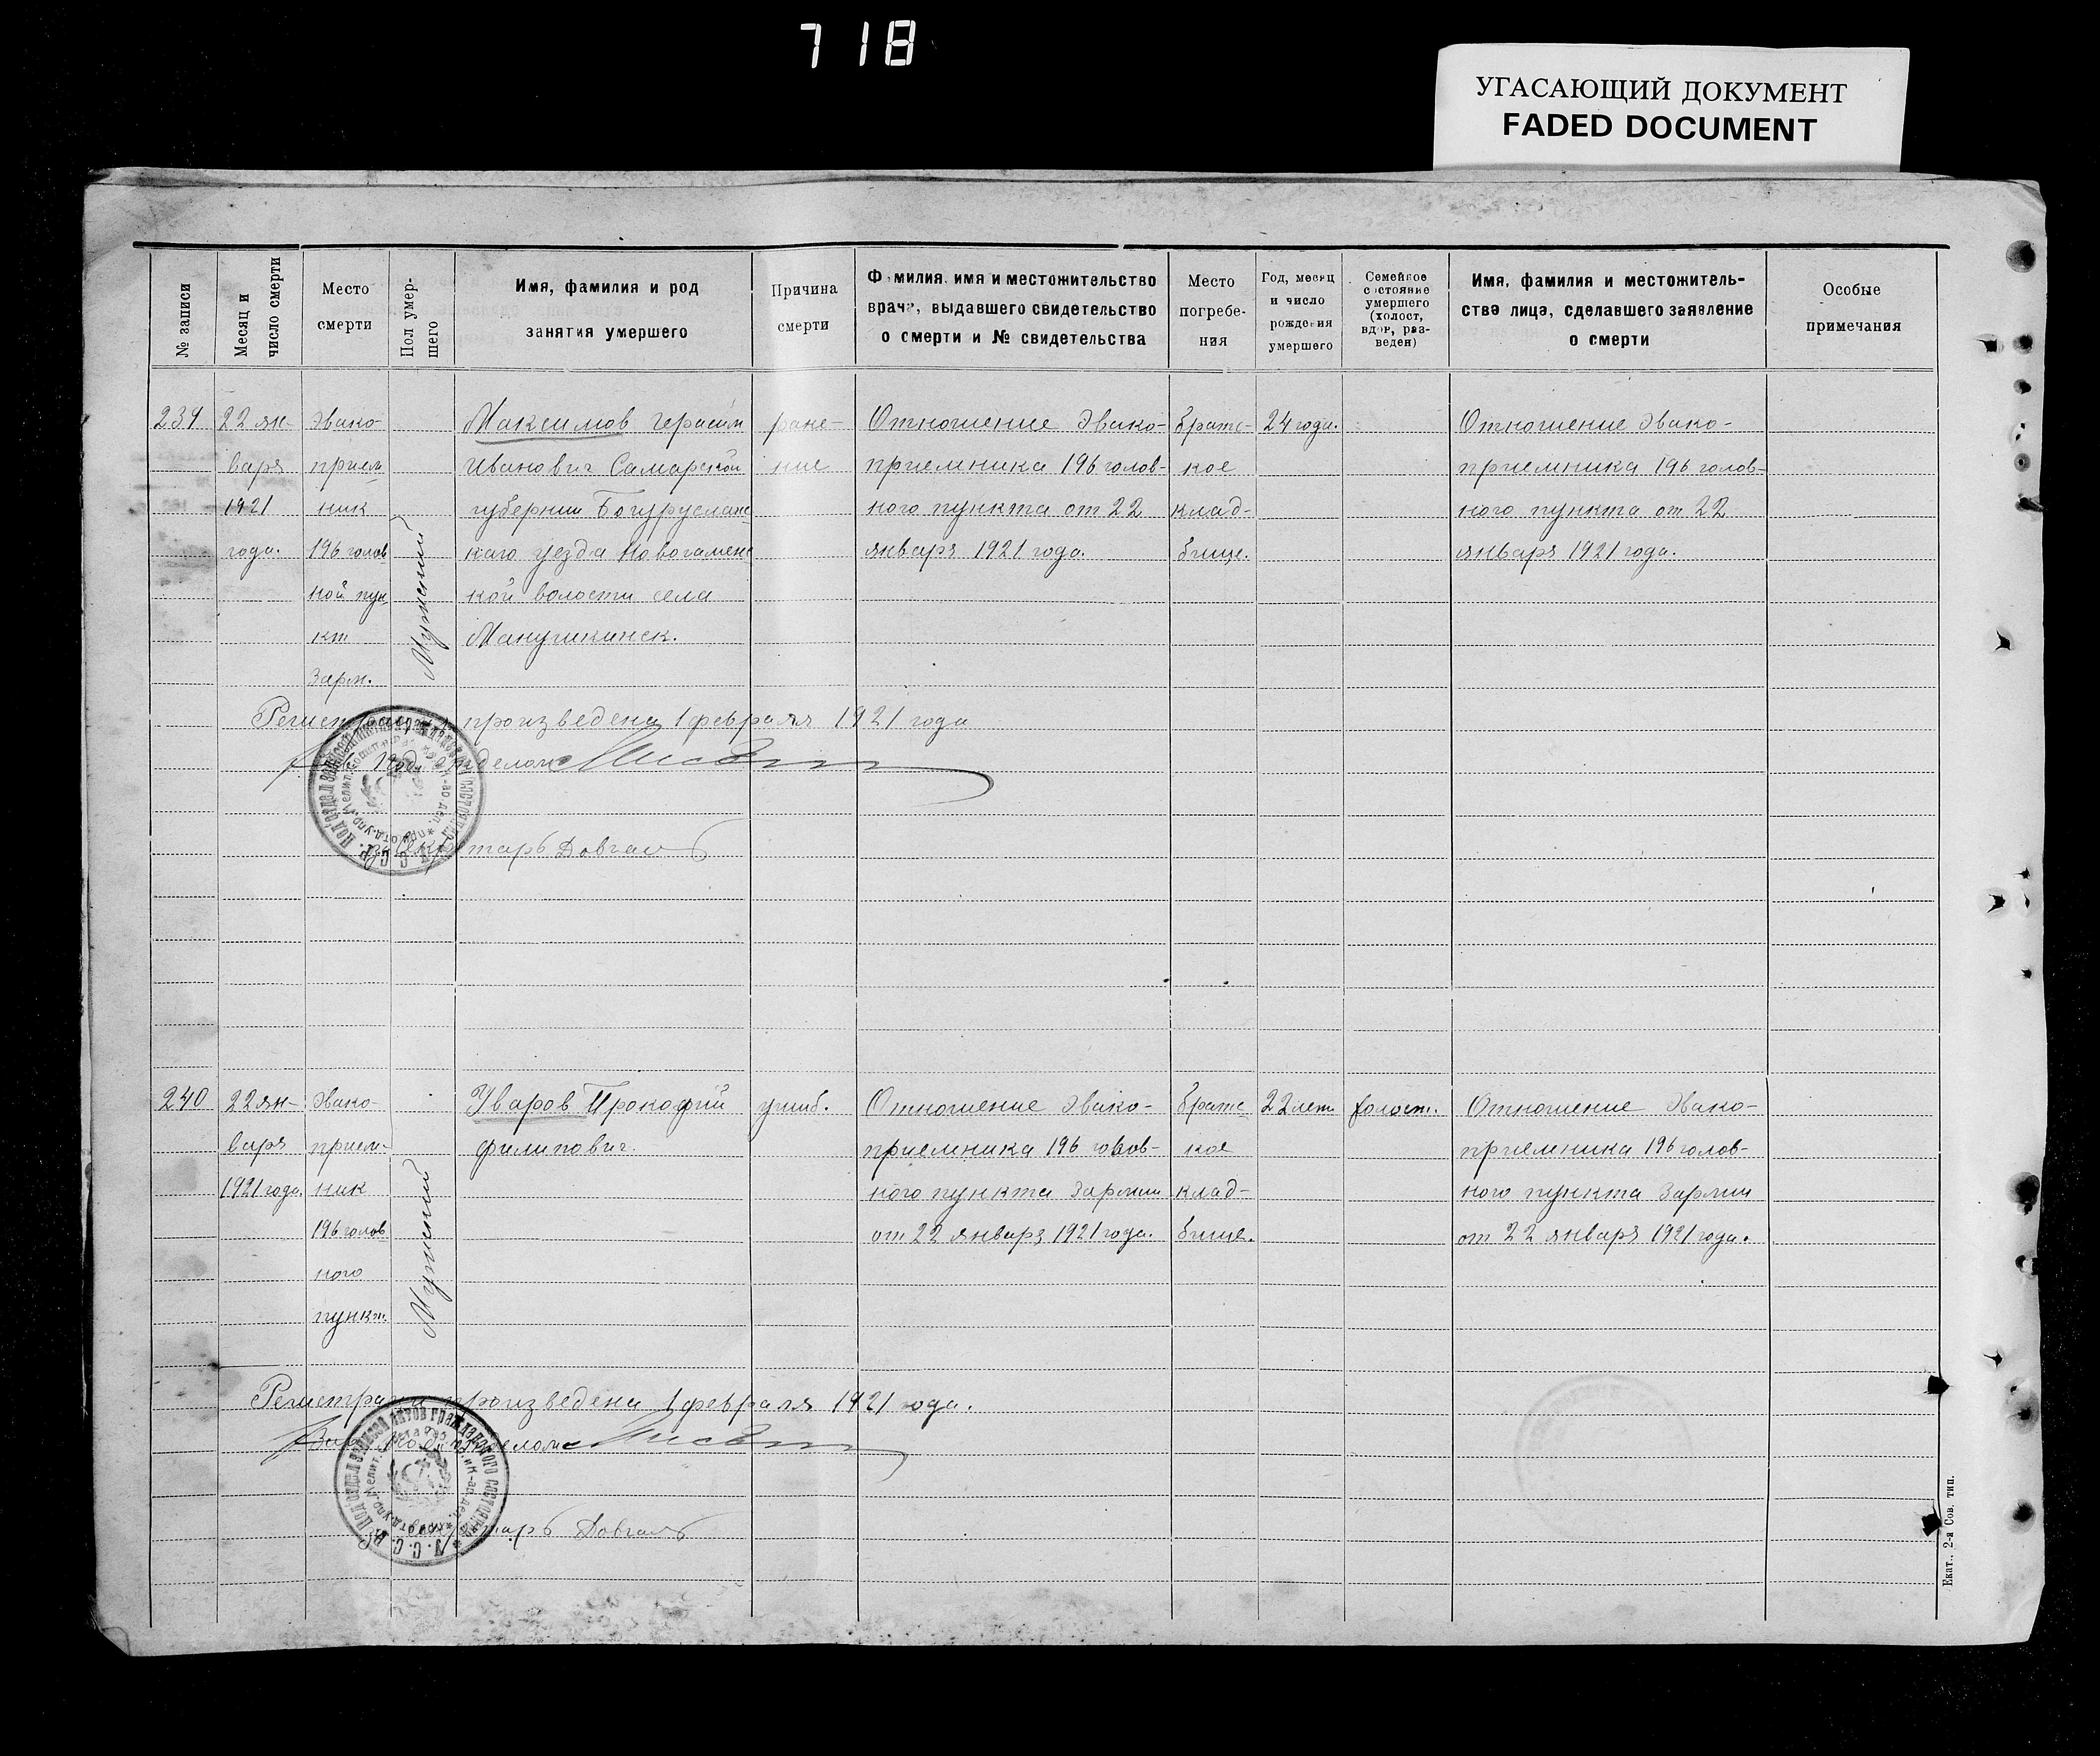 718
УГАСАЮЩИЙ ДОКУМЕНТ
FADED DOCUMENT
№ записи
Месяц и
число смерти
Место
смерти
Пол умер-
шего
Имя, фамилия и род
занятия умершего
Причина
смерти
Фамилия, имя и местожительство
врача, выдавшего свидетельство
о смерти и № свидетельства
Место
погребе-
ния
Год, месяц
и число
рождения
умершего
Семейное
состояние
умершего
(холост,
вдов, раз-
веден)
Имя, фамилия и местожитель-
ство лица, сделавшего заявление
о смерти
Особые
примечания
239
22 ян-
варя
1921
года.
Эвако-
прием
ник
196 голов
ной пун
кт
3арм.
Мужский
Максимов Герасим
Иванович Самарской
губернии Богурусланс
каго уезда
кой волости села
ране-
ние
Отношение Эвако-
приемника 196 голов-
ного пункта от 22
января 1921 года.
братс-
кое
клад-
бище.
24 года.
Отношение Эвако-
приемника 196 голов-
ного пункта от 22
января 1921 года.
Регистрация произведена 1 февраля 1921 года
Зав. Подотделом
Секретарь Довгаль
240
22 ян-
варя
1921 года.
Эвако-
прием-
ник
196 голов
ного
пункт
Мужский
Уваров Прокофий
Филипович.
ушиб.
Отношение Эвако-
приемника 196 голов-
ного пункта 3армии
от 22 января 1921 года.
братс
кое
клад-
бище.
22 лет
холост.
Отношение Эвако-
приемника 196 голов-
ного пункта 3армии
от 22 января 1921 года.
Регистрация произведена 1 февраля 1921 года.
Зав. Подотделом
Секретарь Довгаль
Подотдел записов актов гражданского состояния
Екат., 2-я Сов. тип.